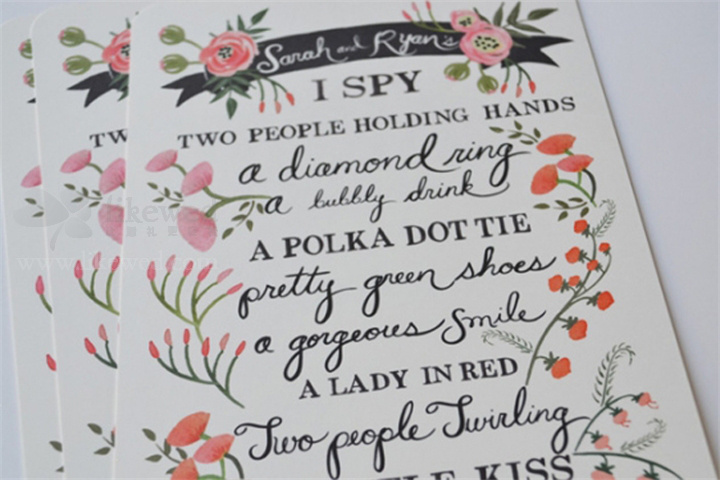 Sarah and Ryan's
I SPY
TWO PEOPLE HOLDING HANDS
a diamond ring
a bubbly drink
A POLKA DOT TIE
pretty green shoes
a gorgeous smile
A LADY IN RED
Two people Twirling
KISS
TW
TW